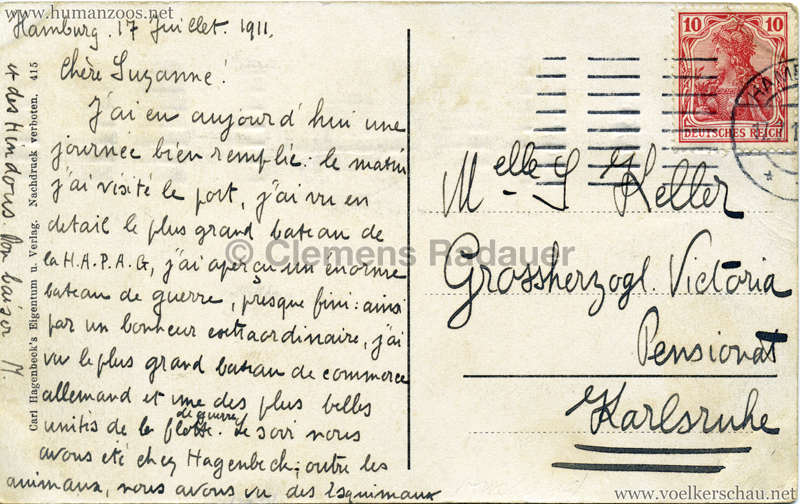 www.humanzoos.net
Hamburg. 17 Juillet. 1911.
Chère Suzanne!
J'ai eu aujourd'hui une
journee bien remplie. le matin
j'ai visité le port, j'ai vu en
detail le plus grand bateau de
la H.A.P.A.G, j'ai aperçu un énorme
bateau de guerre, presque fini: ainsi
par un bonheur extraordinaire, j'ai
vu le plus grand bateau de commerce
allemand et une des plus belles
unités de la flotte de guerre. Le soir nous
avons été chez Hagenbeck; outre les
animaux, nous avons vu des Esquimaux
et des Hindous Bon baiser M.
Carl Hagenbeck's Eigentum u. Verlag. Nachdruck verboten. 415
10 10
DEUTSCHES REICH
HAMB
Melle S Keller
Grossherzogl. Victoria
Pensionat
Karlsruhe
© Clemens Radauer
www.voelkerschau.net